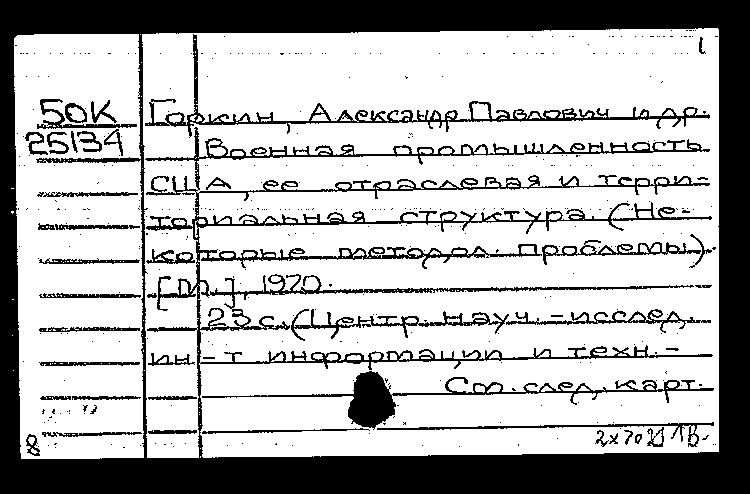 1
50К Горкин, Александр Павлович и др.
25134 Военная промышленность
США, ее отраслевая и терри-
ториальная структура. (Не-
которые методол. проблемы).
[М.], 1970.
23 с. (Центр. науч.-исслед.
ин-т информации и техн.-
См. след. карт.
8